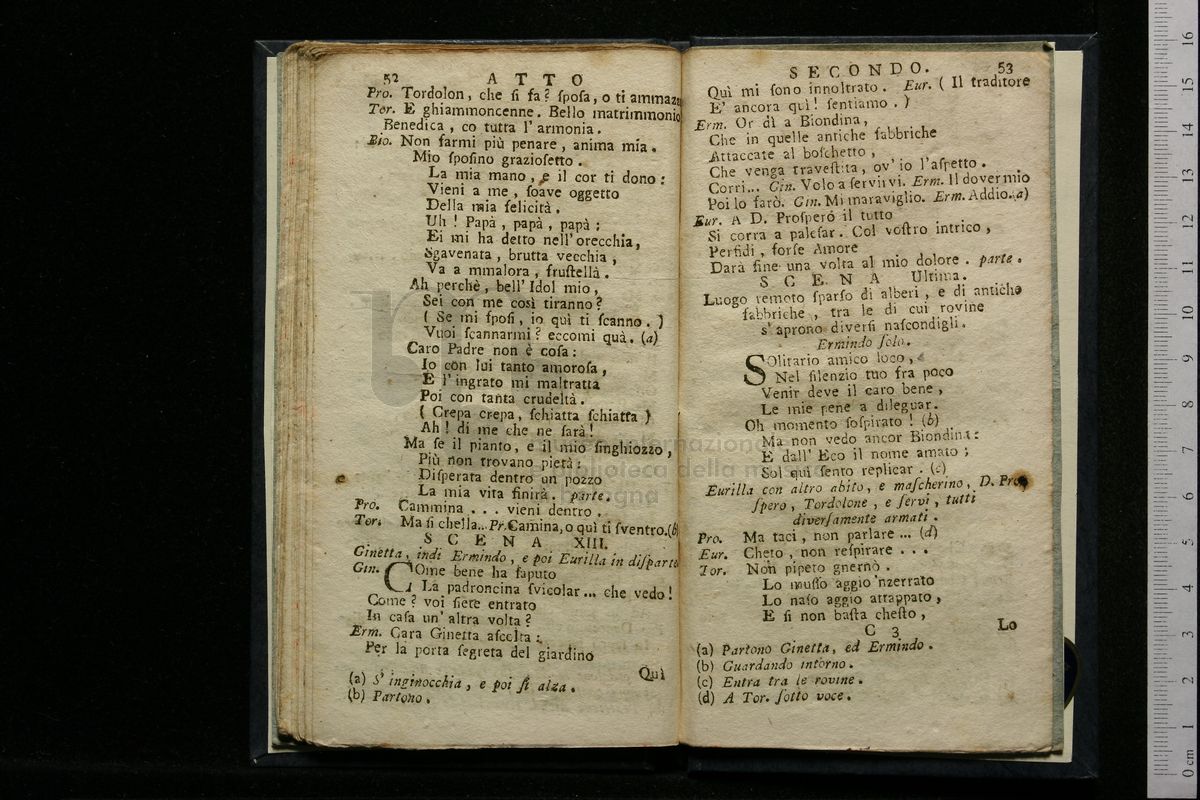 52 ATTO
Pro. Tordolon, che ſi fa? ſpoſa, o ti ammazzo
Tor. E ghiammoncenne. Bello matrimmonio
Benedica, co tutta l'armonia.
Bio. Non farmi più penare, anima mia.
Mio ſpoſino grazioſetto.
La mia mano, e il cor ti dono:
Vieni a me, ſoave oggetto
Della mia felicità.
Uh! Papà, papà, papà:
Ei mi ha detto nell'orecchia,
Sgavenata, brutta vecchia,
Va a mmalora, fruſtellà.
Ah perchè, bell'Idol mio,
Sei con me così tiranno?
( Se mi ſpoſi, io quì ti ſcanno. )
Vuoi ſcannarmi? eccomi quà. (a)
Caro Padre non è coſa:
Io con lui tanto amoroſa,
E l'ingrato mi maltratta
Poi con tanta crudeltà.
( Crepa crepa, ſchiatta ſchiatta )
Ah! di me che ne ſarà!
Ma ſe il pianto, e il mio ſinghiozzo,
Più non trovano pietà:
Diſperata dentro un pozzo
La mia vita finirà. parte.
Pro. Cammina . . . vieni dentro.
Tor. Ma ſi chella.. Pr. Camina, o quì ti ſventro. (b)
SCENA XIII.
Ginetta, indi Ermindo, e poi Eurilla in diſparte
Gin. COme bene ha ſaputo
La padroncina ſvicolar... che vedo!
Come? voi ſiete entrato
In caſa un'altra volta?
Erm. Cara Ginetta aſcolta:
Per la porta ſegreta del giardino
Quì
(a) S'inginocchia, e poi ſi alza.
(b) Partono.
SECONDO. 53
Quì mi ſono innoltrato. Eur. ( Il traditore
E' ancora quì! ſentiamo. )
Erm. Or dì a Biondina,
Che in quelle antiche fabbriche
Attaccate al boſchetto,
Che venga traveſtita, ov'io l'aſpetto.
Corri... Gin. Volo a ſervirvi. Erm. Il dover mio
Poi lo farò. Gin. Mi maraviglio. Erm. Addio. (a)
Eur. A D. Proſpero il tutto
Si corra a paleſar. Col voſtro intrico,
Perfidi, forſe Amore
Darà fine una volta al mio dolore. parte.
SCENA Ultima.
Luogo remoto ſparſo di alberi, e di antiche
fabbriche, tra le di cui rovine
s'aprono diverſi naſcondigli.
Ermindo ſolo.
SOlitario amico loco,
Nel ſilenzio tuo fra poco
Venir deve il caro bene,
Le mie pene a dileguar.
Oh momento ſoſpirato! (b)
Ma non vedo ancor Biondina:
E dall'Eco il nome amato;
Sol quì ſento replicar. (c)
Eurilla con altro abito, e maſcherino, D. Pro-
ſpero, Tordolone, e ſervi, tutti
diverſamente armati.
Pro. Ma taci, non parlare ... (d)
Eur. Cheto, non reſpirare . . .
Tor. Non pipeto gnernò.
Lo muſſo aggio 'nzerrato
Lo naſo aggio attappato,
E ſi non baſta cheſto,
C 3 Lo
(a) Partono Ginetta, ed Ermindo.
(b) Guardando intorno.
(c) Entra tra le rovine.
(d) A Tor. ſotto voce.